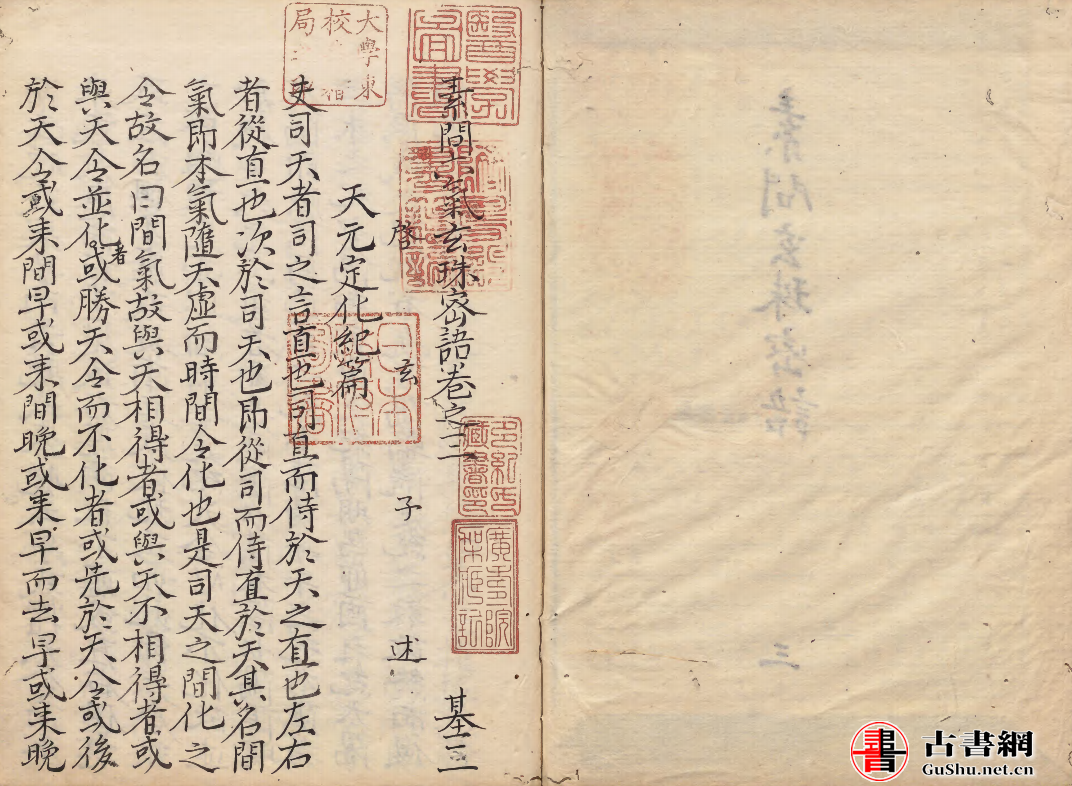 素問六氣玄珠密語卷之三 基三
啓玄子述
天元定化紀篇
夫司天者司之言直也司直而侍於天之直也左右
者從直也次於司天也即從司而侍直於天其名間
氣即本氣隨天虛而時間令化也是司天之間化之
令故名曰間氣故與天相得者或與天不相得者或
與天令並化者或勝天令而不化者或先於天令或後
於天令或来間早或来間晚或来早而去早或来晚
素問玄珠密語
三
大學東
校
局
日本
廣壽院
架藏記
書 古書網
GuShu.net.cn